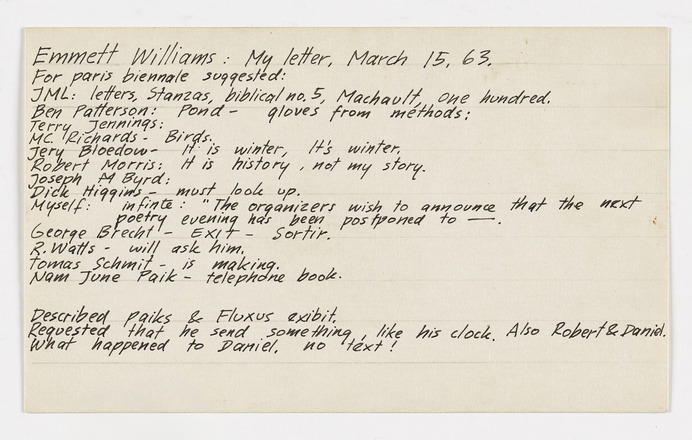 Emmett Williams: My letter, March 15, 63.
For paris biennale suggested:
JML: letters, Stanzas, biblical no. 5, Machault, One hundred.
Ben Patterson: Pond - gloves from methods:
Terry Jennings:
MC. Richards - Birds.
Jery Bloedow - It is winter, It's winter.
Robert Morris: It is history, not my story.
Joseph M Byrd:
Dick Higgins - must look up.
Myself: infinte: "The organizers wish to announce that the next
poetry evening has been postponed to —.
George Brecht - EXIT - Sortir.
R. Watts - will ask him.
Tomas Schmit - is making.
Nam June Paik - telephone book.
Described paiks & Fluxus exibit.
Requested that he send something, like his clock. Also Robert & Daniel.
What happened to Daniel, no text!